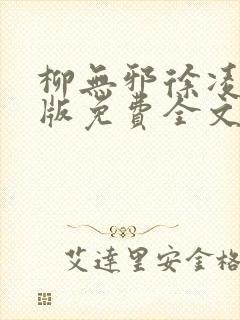 柳無邪徐凌
版免費全文
艾達里安金格